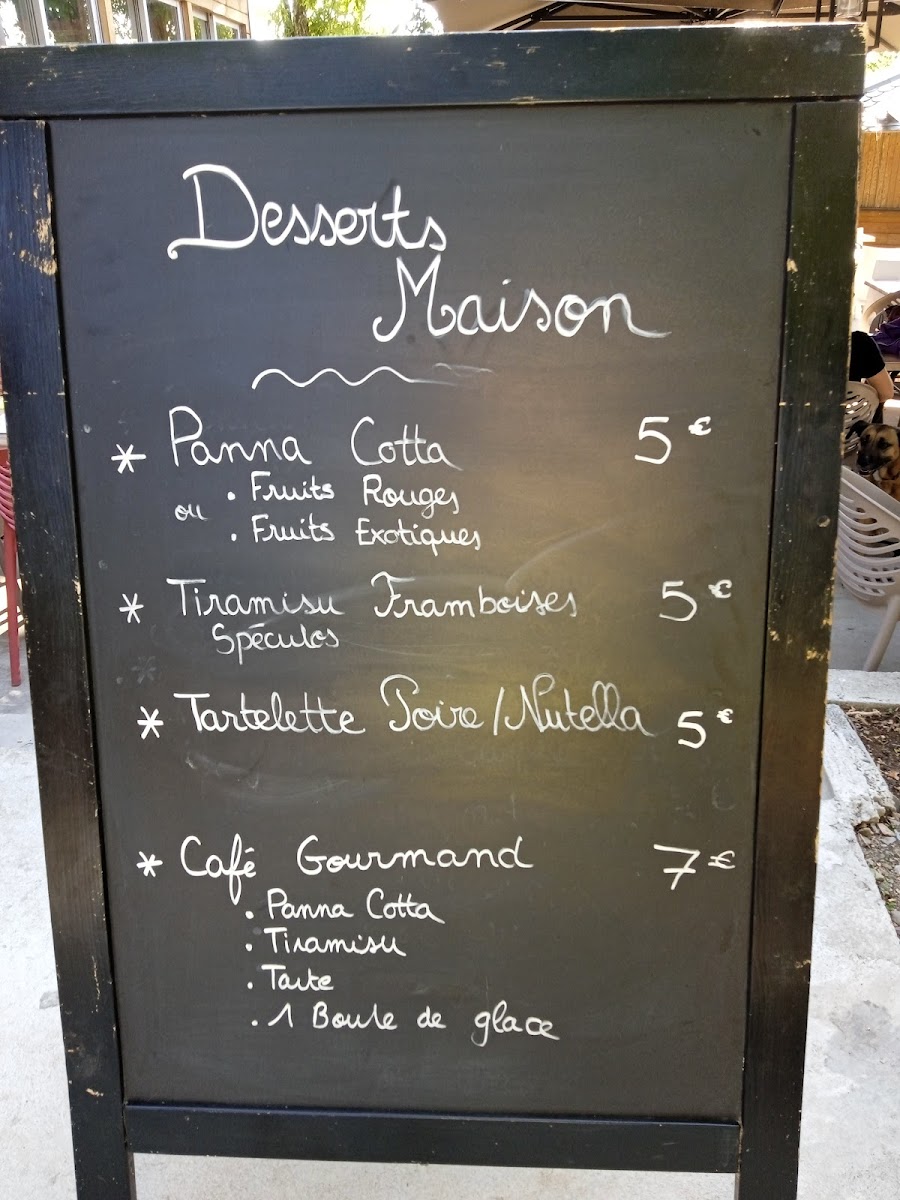 Desserts
Maison
* Panna Cotta 5€
• Fruits Rouges
ou
• Fruits Exotiques
* Tiramisu Framboises 5€
Spéculos
* Tartelette Poire/Nutella 5€
* Café Gourmand 7€
• Panna Cotta
• Tiramisu
• Tarte
• 1 Boule de glace